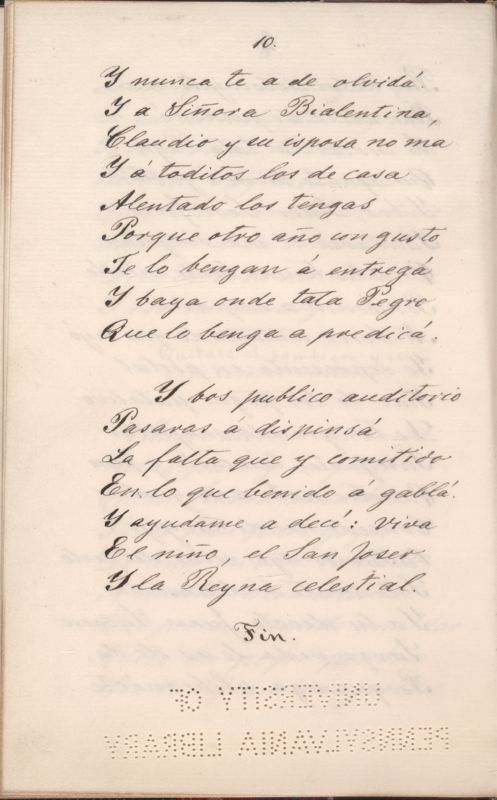 10.
Y nunca te a de olvidá.
Y a Siñora Bialentina,
Claudio y su isposa no ma
Y á toditos los de casa
Alentado los tengas
Porque otro año con gusto
Te lo bengan á entregá
Y baya onde tata Pegro
Que lo benga a predicá.
Y bos publico auditorio
Pasaras á dispinsá
La falta que y comitido
En lo que benido á gablá.
Y ayudame a decé: viva
El niño, el San Joser
Y la Reyna celestial.
Fin.
UNIVERSITY OF
PENNSYLVANIA LIBRARY